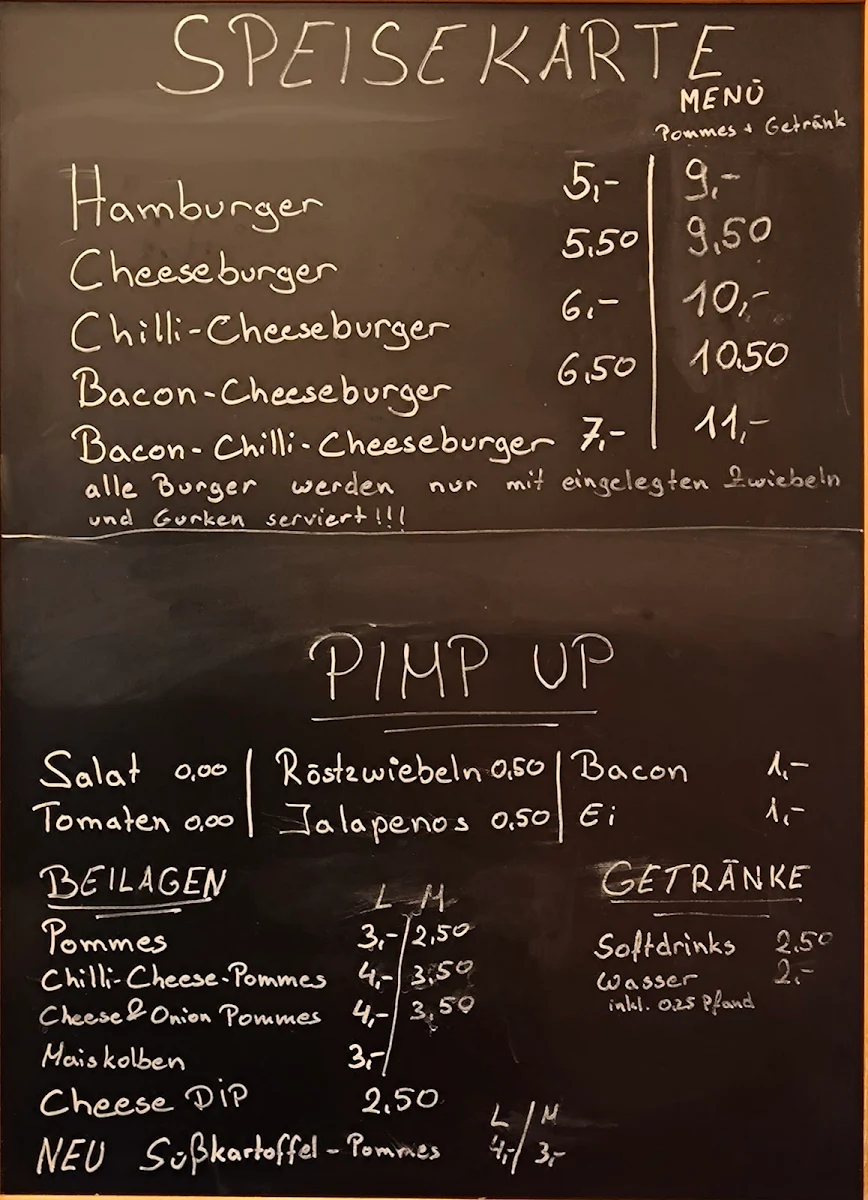 SPEISEKARTE
MENÜ
Pommes + Getränk
Hamburger 5,- 9,-
Cheeseburger 5,50 9,50
Chilli-Cheeseburger 6,- 10,-
Bacon-Cheeseburger 6,50 10,50
Bacon-Chilli-Cheeseburger 7,- 11,-
alle Burger werden nur mit eingelegten Zwiebeln
und Gurken serviert!!!
PIMP UP
Salat 0,00 Röstzwiebeln 0,50 Bacon 1,-
Tomaten 0,00 Jalapenos 0,50 Ei 1,-
BEILAGEN
L M
Pommes 3,-/2,50
Chilli-Cheese-Pommes 4,-/3,50
Cheese & Onion Pommes 4,-/3,50
Maiskolben 3,-/
Cheese DiP 2,50
L/M
NEU Süßkartoffel-Pommes 4,-/3,-
GETRÄNKE
Softdrinks 2,50
Wasser 2,-
inkl. 0,25 Pfand